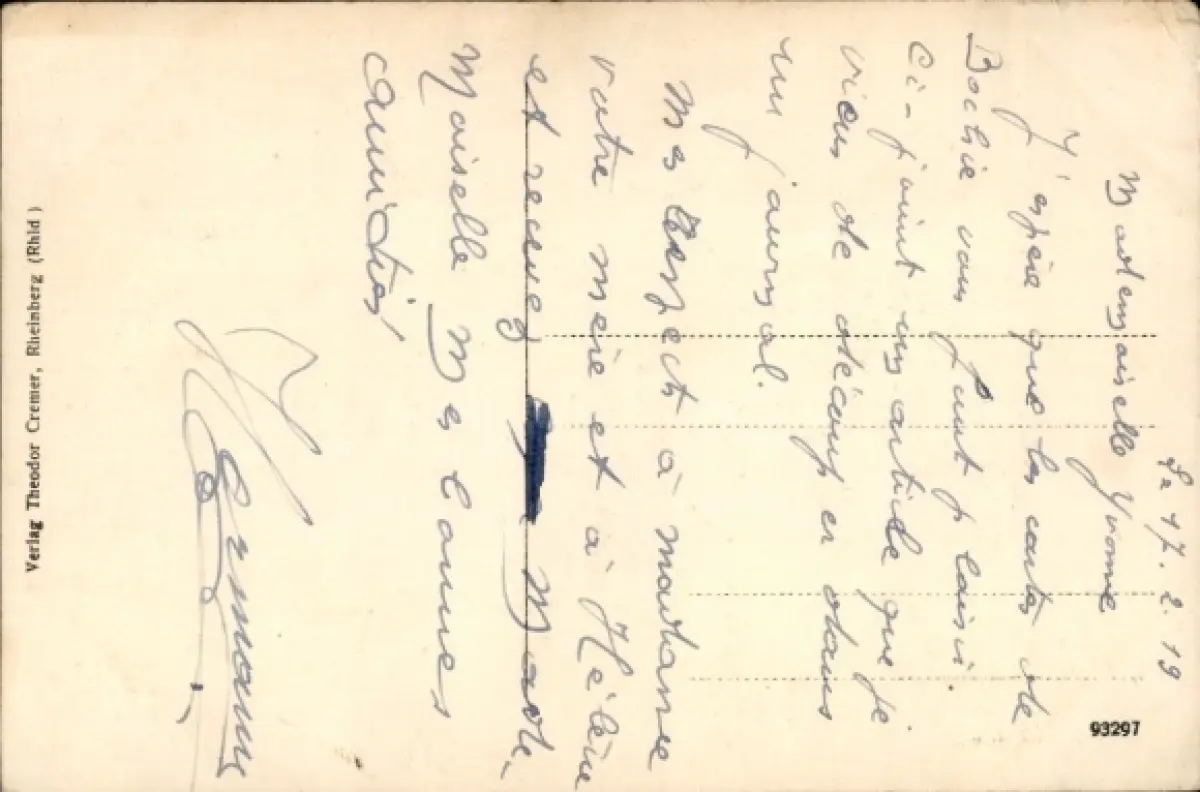 Le 17. 2. 19
Mademoiselle Yvonne
J'espère que les cartes de
Bochie vous font plaisir
Ci-joint un article que je
viens de découp er dans
un journal.
Mes respects à madame
votre mère et à Hélène
et recevez Made-
moiselle Mes bonnes
amitiés
Hermann
Verlag Theodor Cremer, Rheinberg (Rhld)
93297